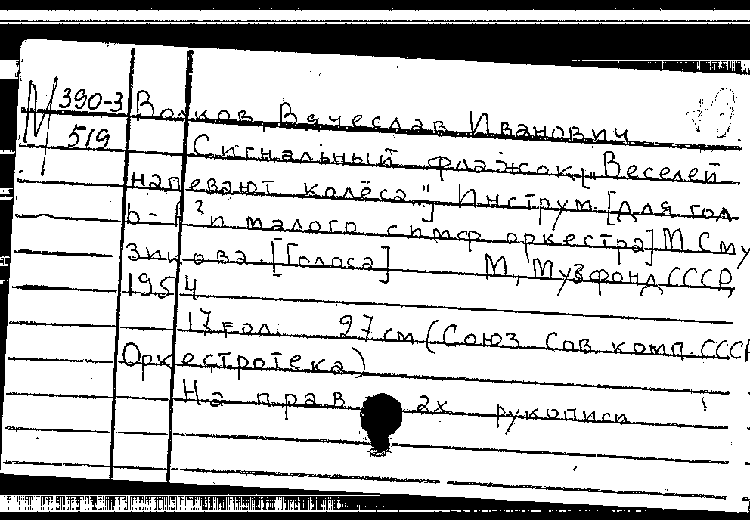 М 390-3
519
Волков, Вячеслав Иванович
Сигнальный флажок. „Веселей
напевают колёса"] Инструм. [для гол
и малого симф оркестра] М Сму
зикова. [Голоса] М, Музфонд СССР,
1954
17 гол. 27 см (Союз Сов. комп. СССР
Оркестротека)
На прав рукописи